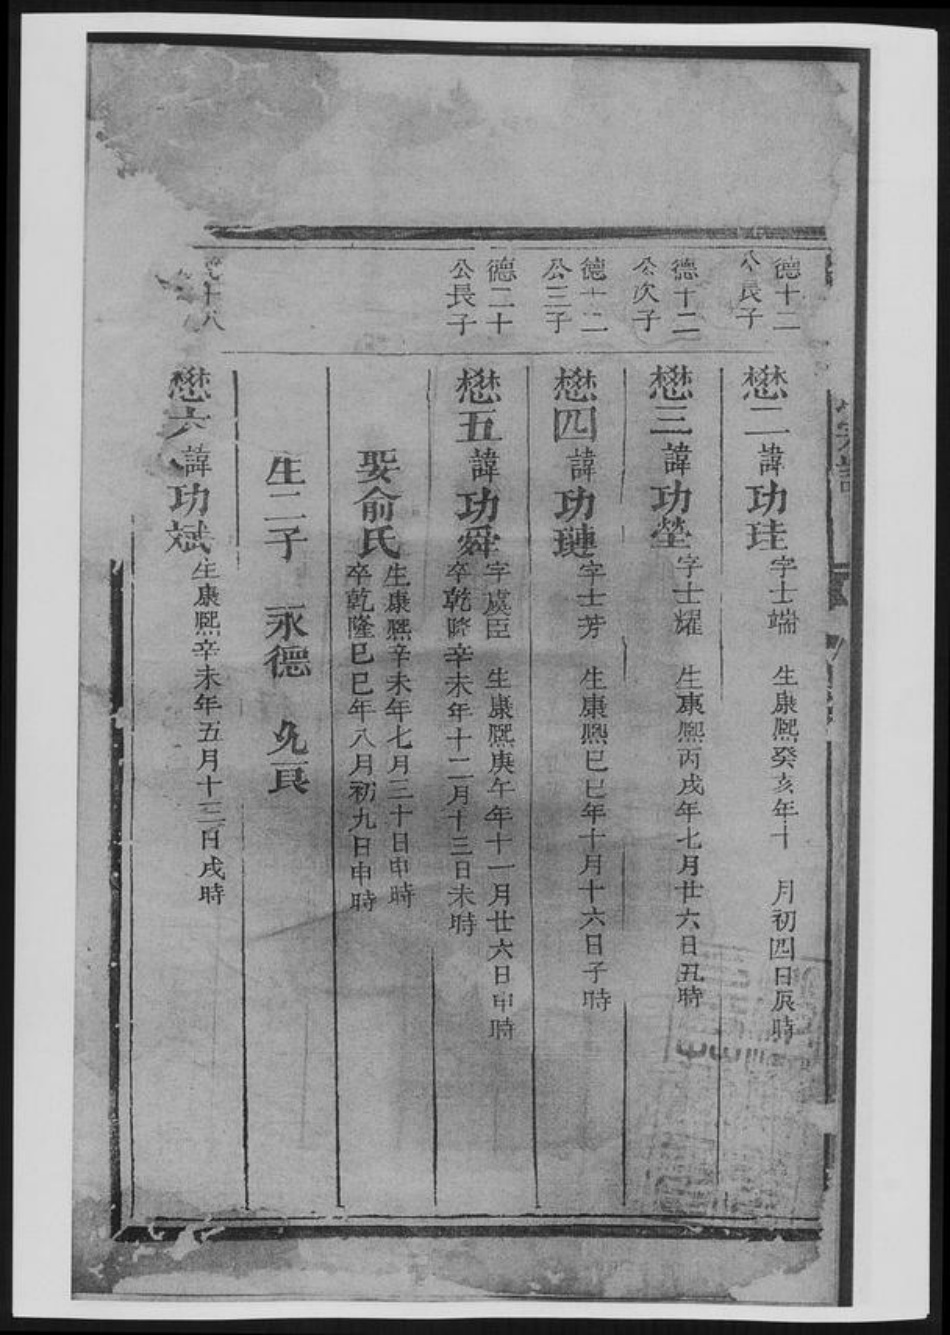 德十二
公長子
懋二諱功珪 字士端 生康熙癸亥年十 月初四日辰時
德十二
公次子
懋三諱功塋 字士耀 生康熙丙戌年七月廿六日丑時
德十二
公三子
懋四諱功璉 字士芳 生康熙己巳年十月十六日子時
德二十
公長子
懋五諱功舜 字虞臣 生康熙庚午年十一月廿六日申時
卒乾隆辛未年十二月十三日未時
娶俞氏 生康熙辛未年七月三十日申時
卒乾隆己巳年八月初九日申時
生二子 永德 久良
十八
懋六諱功斌 生康熙辛未年五月十三日戌時